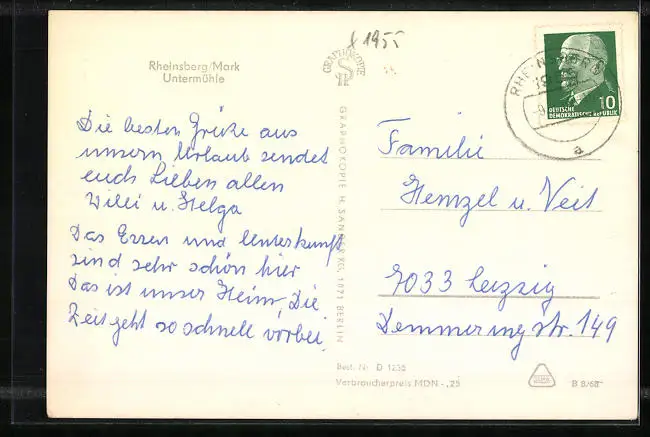 x 1955
Rheinsberg/Mark
Untermühle
GRAPHOKOPIE
RHEINSBERG
10
DEUTSCHE
DEMOKRATISCHE REPUBLIK
a
Die besten Grüße aus
unserm Urlaub sendet
euch Lieben allen
Willi u. Helga
Das Essen und Unterkunft
sind sehr schön hier
Das ist unser Heim, Die
Zeit geht so schnell vorbei.
GRAPHOKOPIE H. SANDER KG, 1071 BERLIN
Familie
Hemzel u. Veit
7033 Leipzig
Demmeringstr. 149
Best. Nr. D 1235
Verbraucherpreis MDN -,25
B 8/68